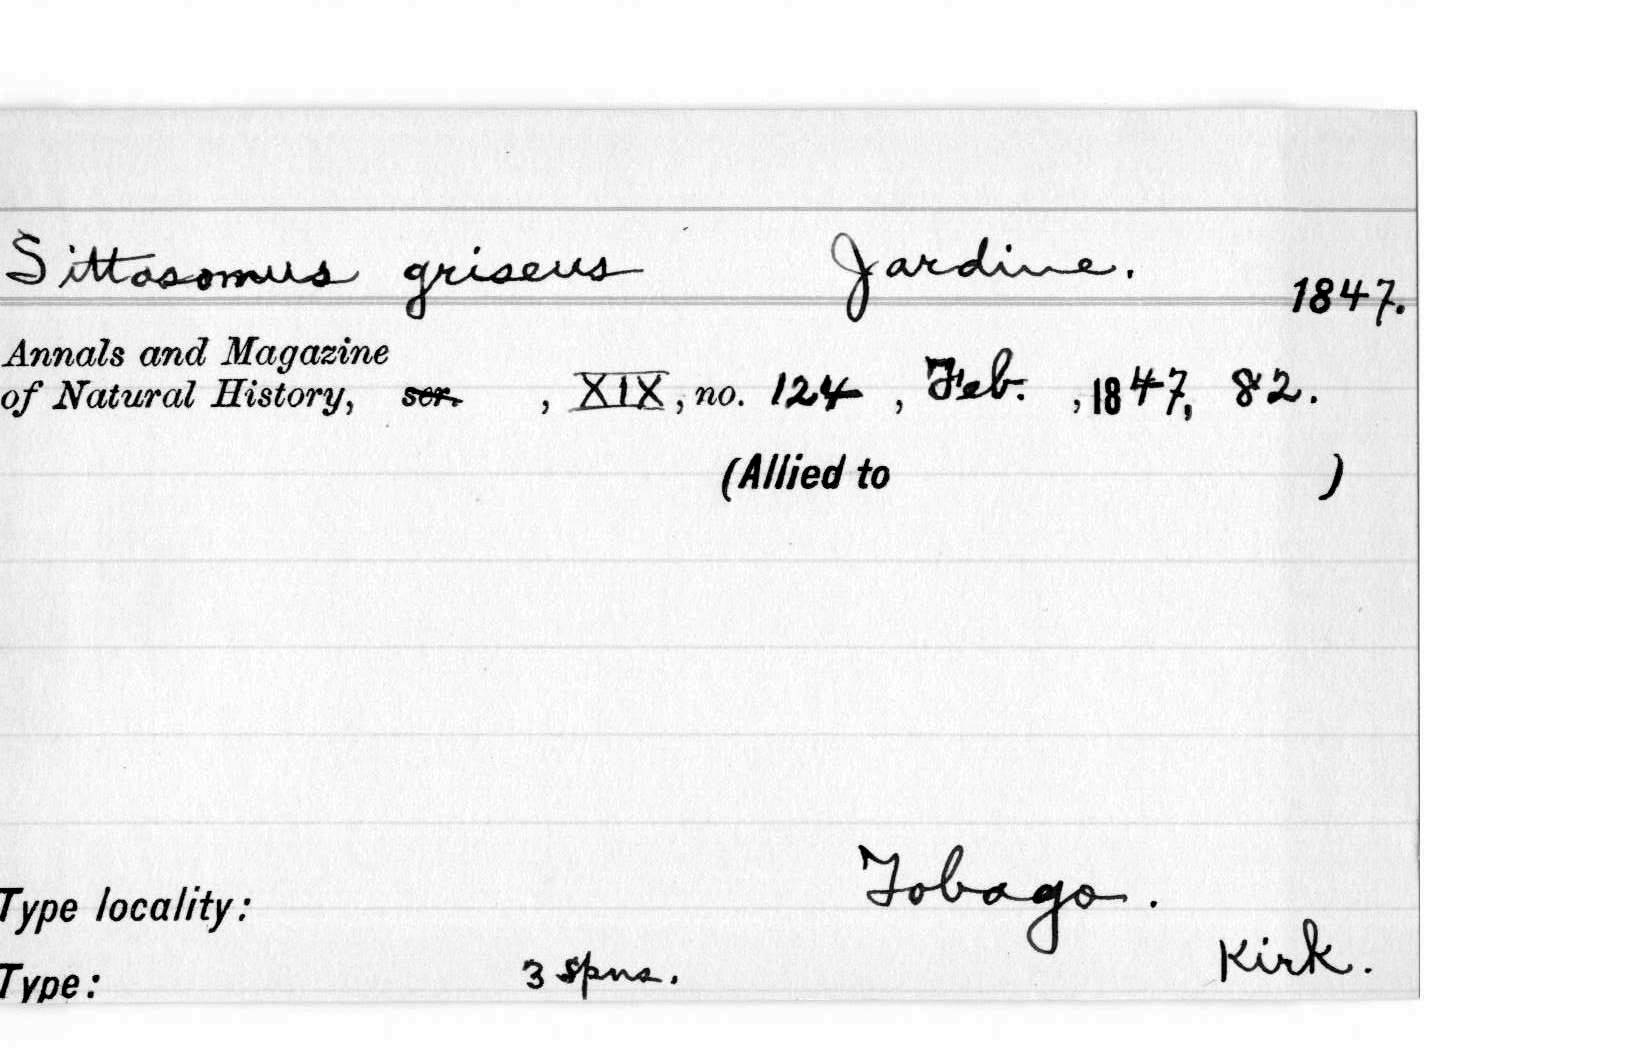 Sittosomus griseus Jardine.
1847.
Annals and Magazine
of Natural History, ser. , XIX, no. 124 , Feb. , 1847, 82.
(Allied to )
Type locality: Tobago.
Type: 3 spns. Kirk.